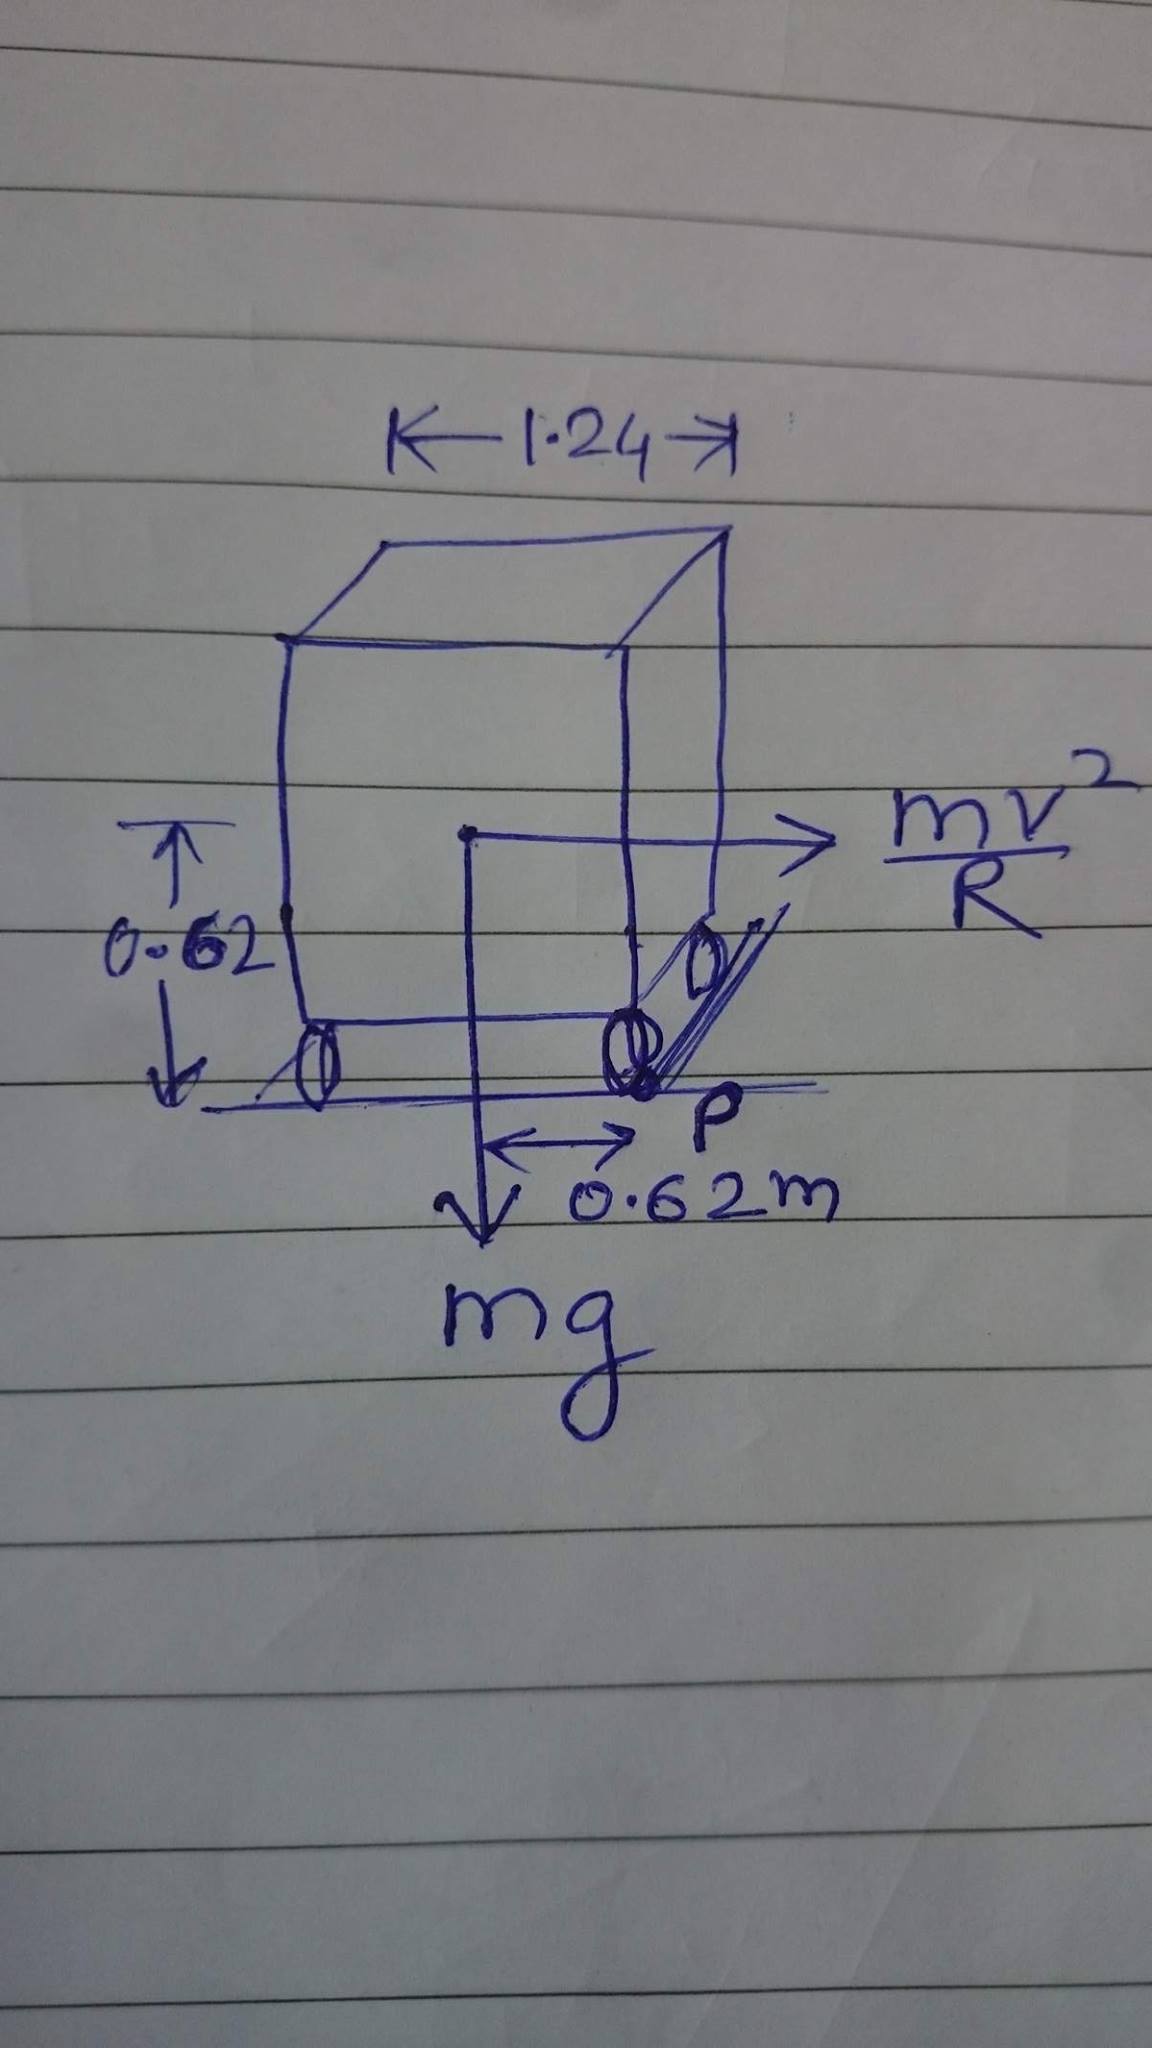 1.24
mv²
R
0.62
P
0.62m
mg